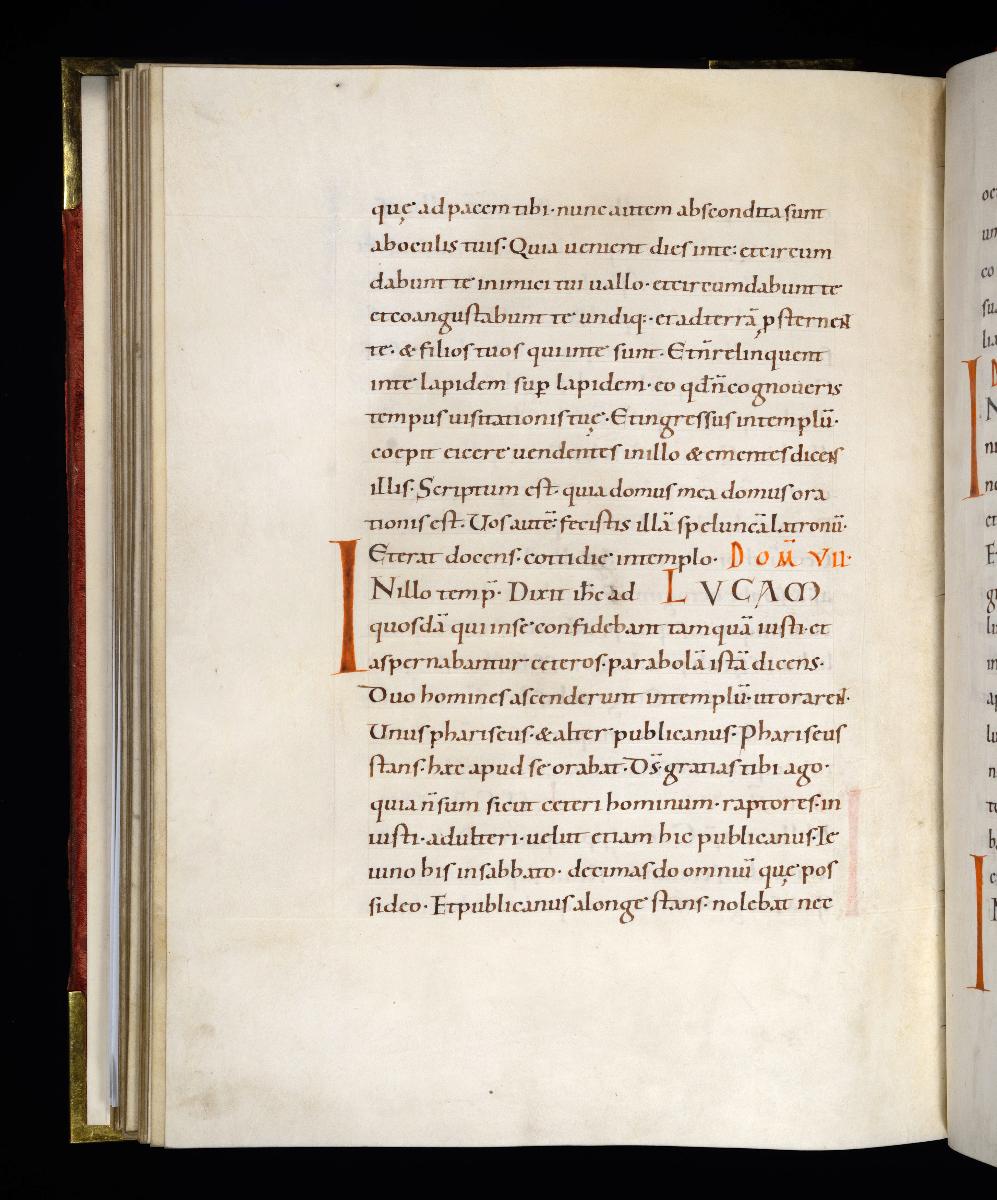 quę ad pacem tibi· nunc autem abscondita sunt
ab oculis tuis· Quia uenient dies in te· et circum
dabunt te inimici tui uallo· et circumdabunt te
et coangustabunt te undiq;· et ad terrā ꝓsternent
te· & filios tuos qui in te sunt· Et n̄ relinquent
in te lapidem suꝑ lapidem· eo qd̄ n̄ cognoueris
tempus uisitationis tuę· Et ingressus in templū·
coepit eicere uendentes in illo & ementes dicens
illis· Scriptum est· quia domus mea domus ora
tionis est· Uos autē fecistis illā speluncā latronū·
Et erat docens· cottidie in templo· DOM̄ VII·
IN illo temp̄· Dixit ihc̄ ad LVCAM
quosdā qui in se confidebant tamquā iusti· et
aspernabantur ceteros· parabolā istā dicens·
Duo homines ascenderunt in templū· ut orarent·
Unus phariseus· & alter publicanus· Phariseus
stans· hæc apud se orabat· Ds̄ gratias tibi ago·
quia n̄ sum sicut ceteri hominum· raptores· in
iusti· adulteri· uelut etiam hic publicanus· Ie
iuno bis in sabbato· decimas do omniū quę pos
sideo· Et publicanus a longe stans· nolebat nec